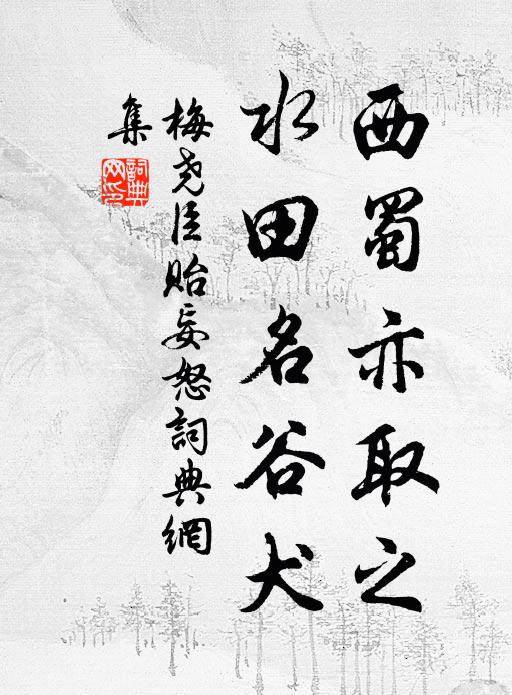 西蜀亦取之
水田名谷犬
梅尧臣貽妄怒詞典網
集
詞典網